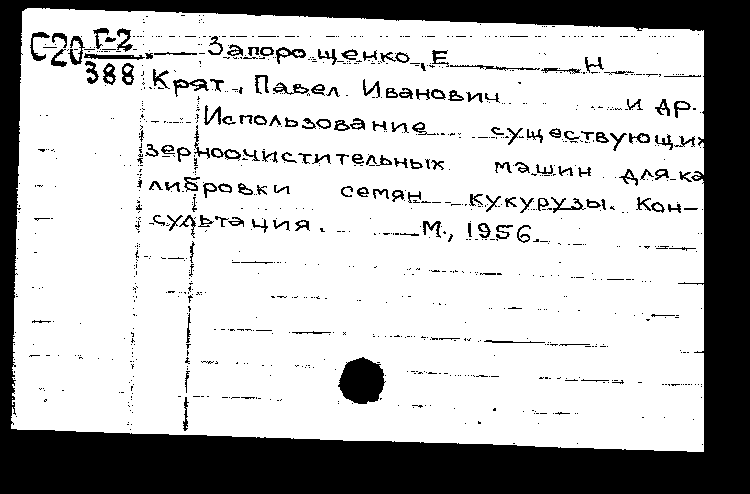 С20 Г-2 Запорощенко, Е Н
388 Крят, Павел Иванович и др.
Использование существующих
зерноочистительных машин для ка
либровки семян кукурузы. Кон-
сультация. М., 1956.